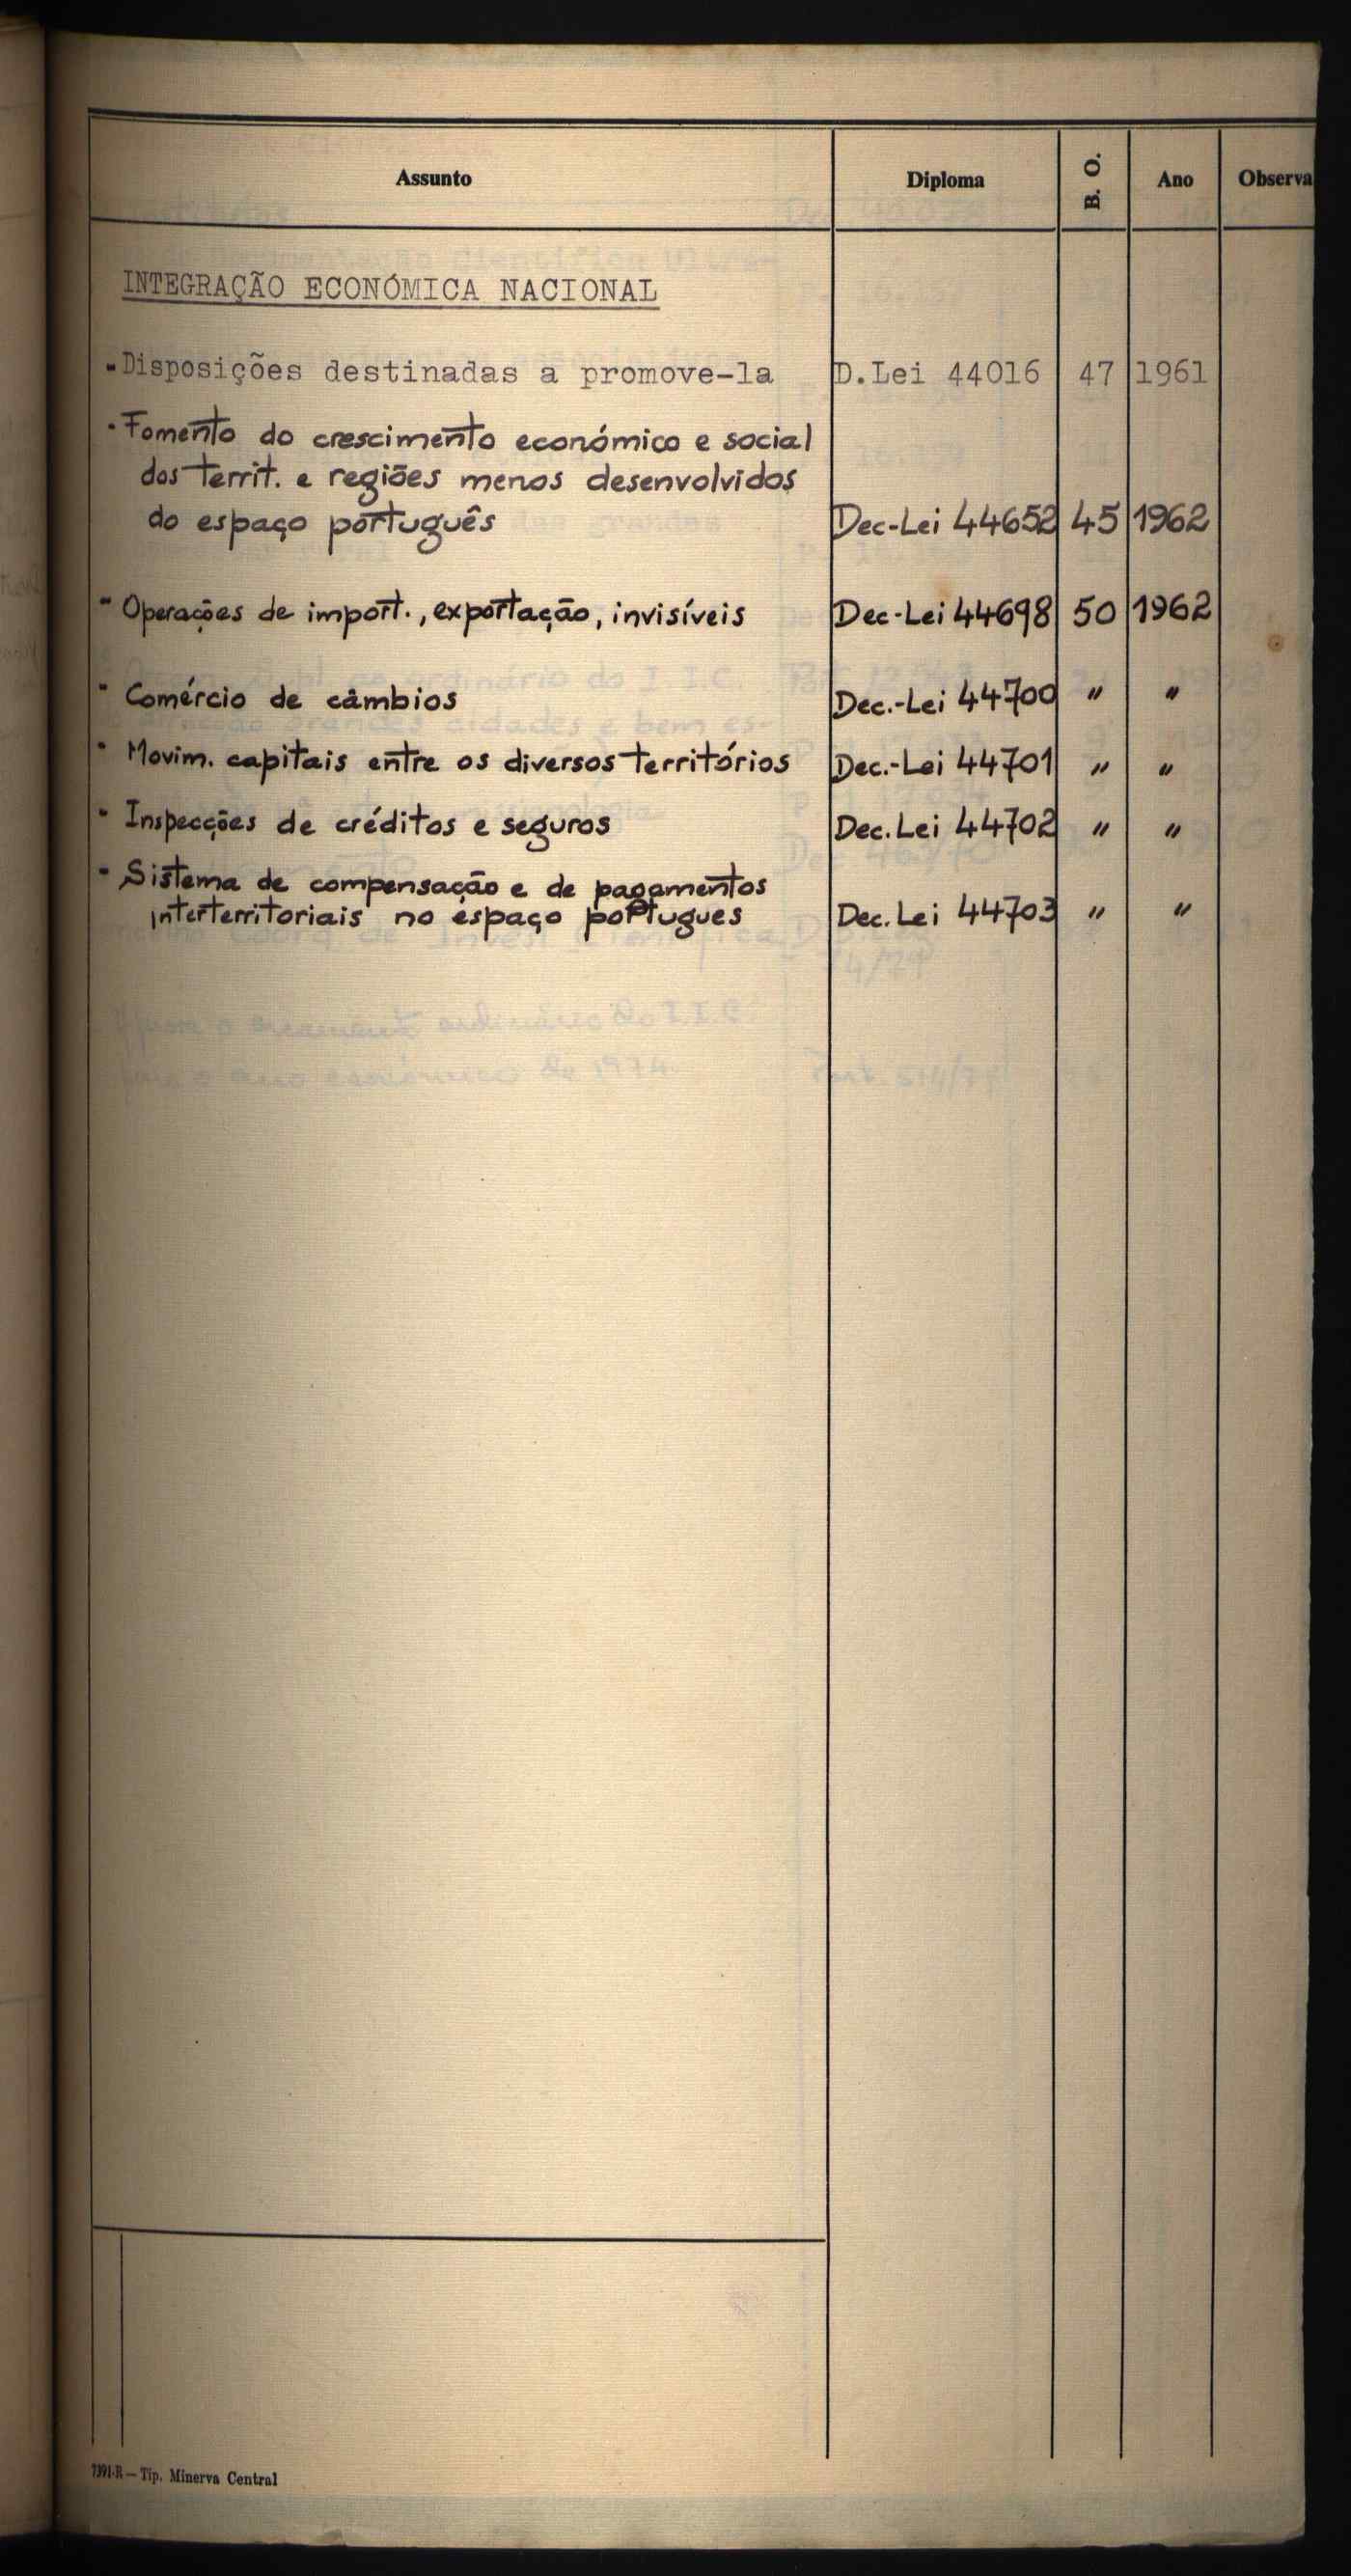 Assunto Diploma B. O. Ano Observa
INTEGRAÇÃO ECONÓMICA NACIONAL
-Disposições destinadas a promove-la D.Lei 44016 47 1961
- Fomento do crescimento económico e social
dos territ. e regiões menos desenvolvidos
do espaço português Dec-Lei 44652 45 1962
- Operações de import., exportação, invisíveis Dec-Lei 44698 50 1962
- Comércio de câmbios Dec.-Lei 44700 " "
- Movim. capitais entre os diversos territórios Dec.-Lei 44701 " "
- Inspecções de créditos e seguros Dec. Lei 44702 " "
- Sistema de compensação e de pagamentos
interterritoriais no espaço portugues Dec. Lei 44703 " "
7391-R — Tip. Minerva Central